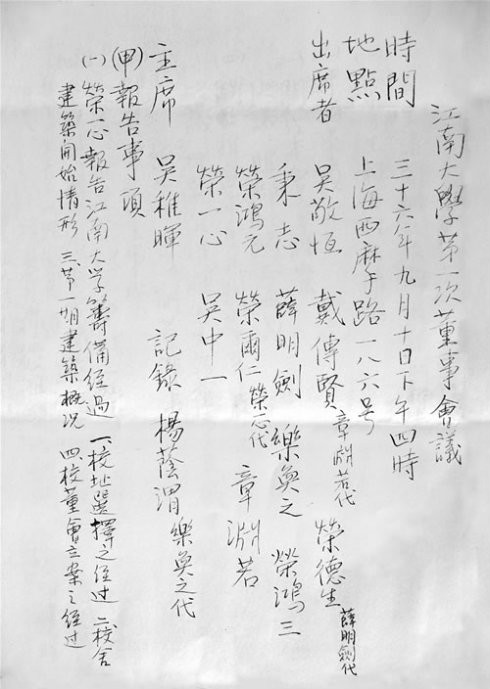 江南大學第一次董事會議
時間　三十六年九月十日下午四時
地點　上海西麻亍路一八六号
出席者　吳敬恆　戴傳賢 章淵若代　榮德生 薛明劍代
秉志　薛明劍　樂奐之　榮鴻三
榮鴻元　榮爾仁 榮一心代　章淵若
榮一心　吳中一
主席　吳稚暉　記錄　楊蔭渭 樂奐之代
(甲)報告事項
(一)榮一心報告江南大学籌備經過 一、校址選擇之经过 二、校舍
建築開始情形 三、第一期建築概况 四、校董會立案之经过